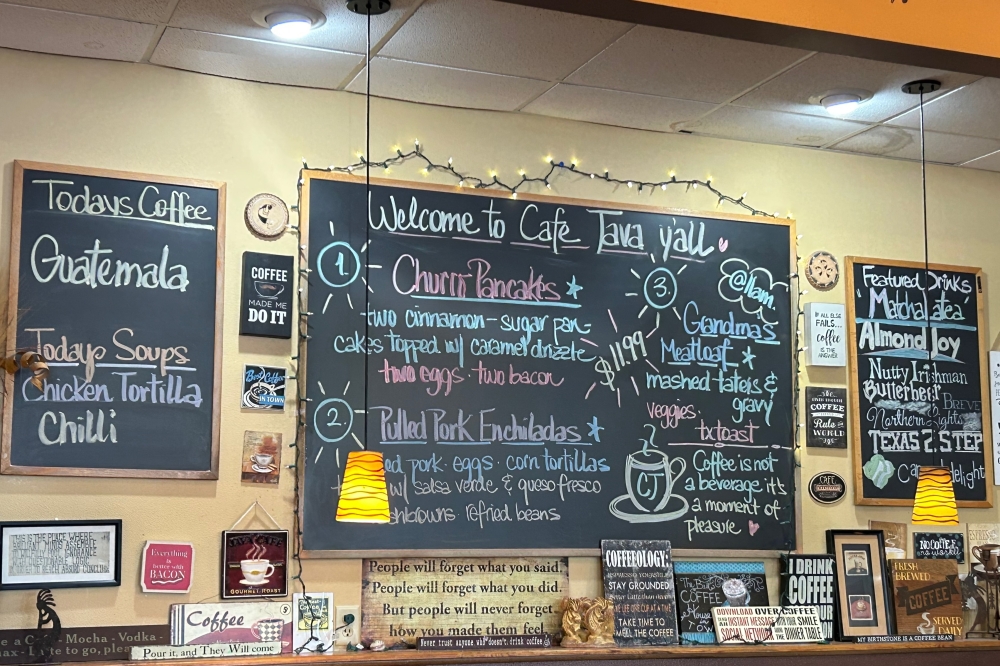 Todays Coffee
Guatemala
Todays Soups
Chicken Tortilla
Chilli
COFFEE
MADE ME
DO IT
Best Coffee
IN TOWN
Welcome to Cafe Java y'all
1.
Churri Pancakes
two cinnamon-sugar pan-
cakes topped w/ caramel drizzle
two eggs · two bacon
2.
Pulled Pork Enchiladas
ed pork · eggs · corn tortillas
w/ salsa verde & queso fresco
refried beans
3.
@11am
Grandmas
Meatloaf
$11.99
mashed taters &
gravy
veggies·
txtoast
CJ
Coffee is not
a beverage it's
a moment of
pleasure
IF ALL ELSE
FAILS...
coffee
IS THE
ANSWER
COFFEE
Rule the
WORLD
CAFE
Featured Drinks
Matcha tea
Almond Joy
Nutty Irishman
Butterbeer
BREVE
Northern Lights
TEXAS 2 STEP
delight
THIS IS THE PLACE WHERE
Everything
is better with
BACON
GOURMET ROAST
Coffee
Pour it, and They will Come
e a Co · Mocha · Vodka ·
to go, please
People will forget what you said.
People will forget what you did.
But people will never forget
how you made them feel.
Never trust anyone who doesn't drink coffee
COFFEEOLOGY:
STAY GROUNDED
TAKE LIFE ONE CUP AT A TIME
TAKE TIME TO
SMELL THE COFFEE
DOWNLOAD OVER COFFEE
INSTANT MESSAGE WITH YOUR SMILE
SOCIAL NETWORK THE DINNER TABLE
I DRINK
COFFEE
YOUR
NO COFFEE
no workee
FRESH
BREWED
COFFEE
SERVED
DAILY
MY BIRTHSTONE IS A COFFEE BEAN